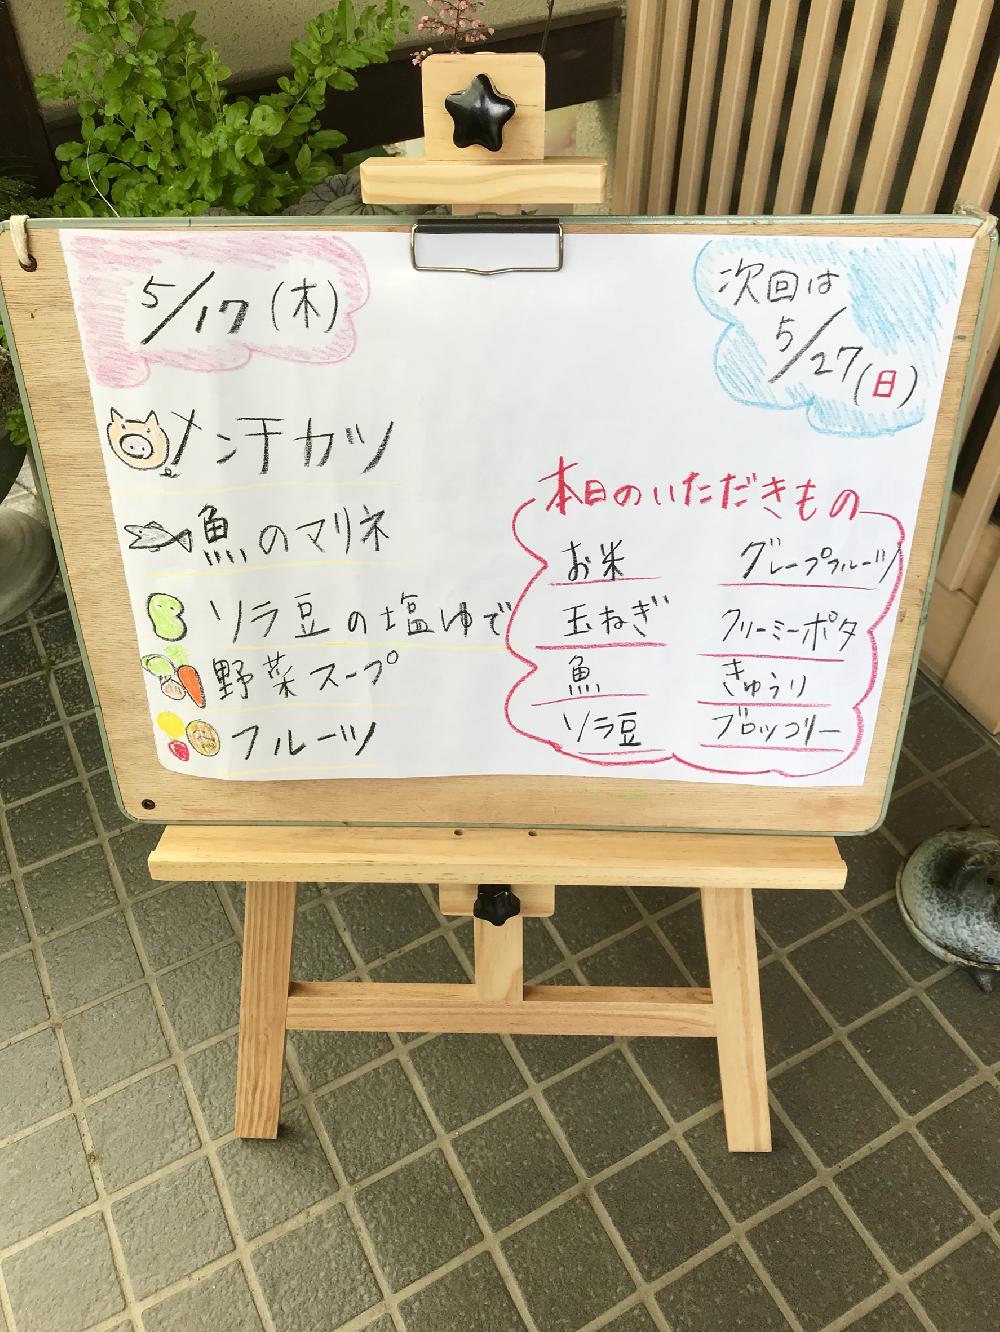 5/17(木)
メン千カツ
魚のマリネ
ソラ豆の塩ゆで
野菜スープ
フルーツ
次回は
5/27(日)
本日のいただきもの
お米
玉ねぎ
魚
ソラ豆
グレープフルーツ
クリーミーポタ
きゅうり
ブロッコリー